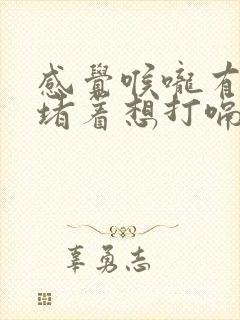 感覺喉嚨有
堵着想打嗝
辜勇志